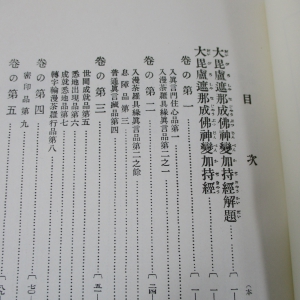 目次
大毘盧遮那成佛神變加持經解題
大毘盧遮那成佛神變加持經
卷の第一
入眞言門住心品第一
入漫茶羅具緣眞言品第二之一
卷の第二
入漫茶羅具緣眞言品第二之餘
息障品第三
普通眞言藏品第四
卷の第三
世間成就品第五
悉地出現品第六
成就悉地品第七
轉字輪漫茶羅行品第八
卷の第四
密印品第九
卷の第五